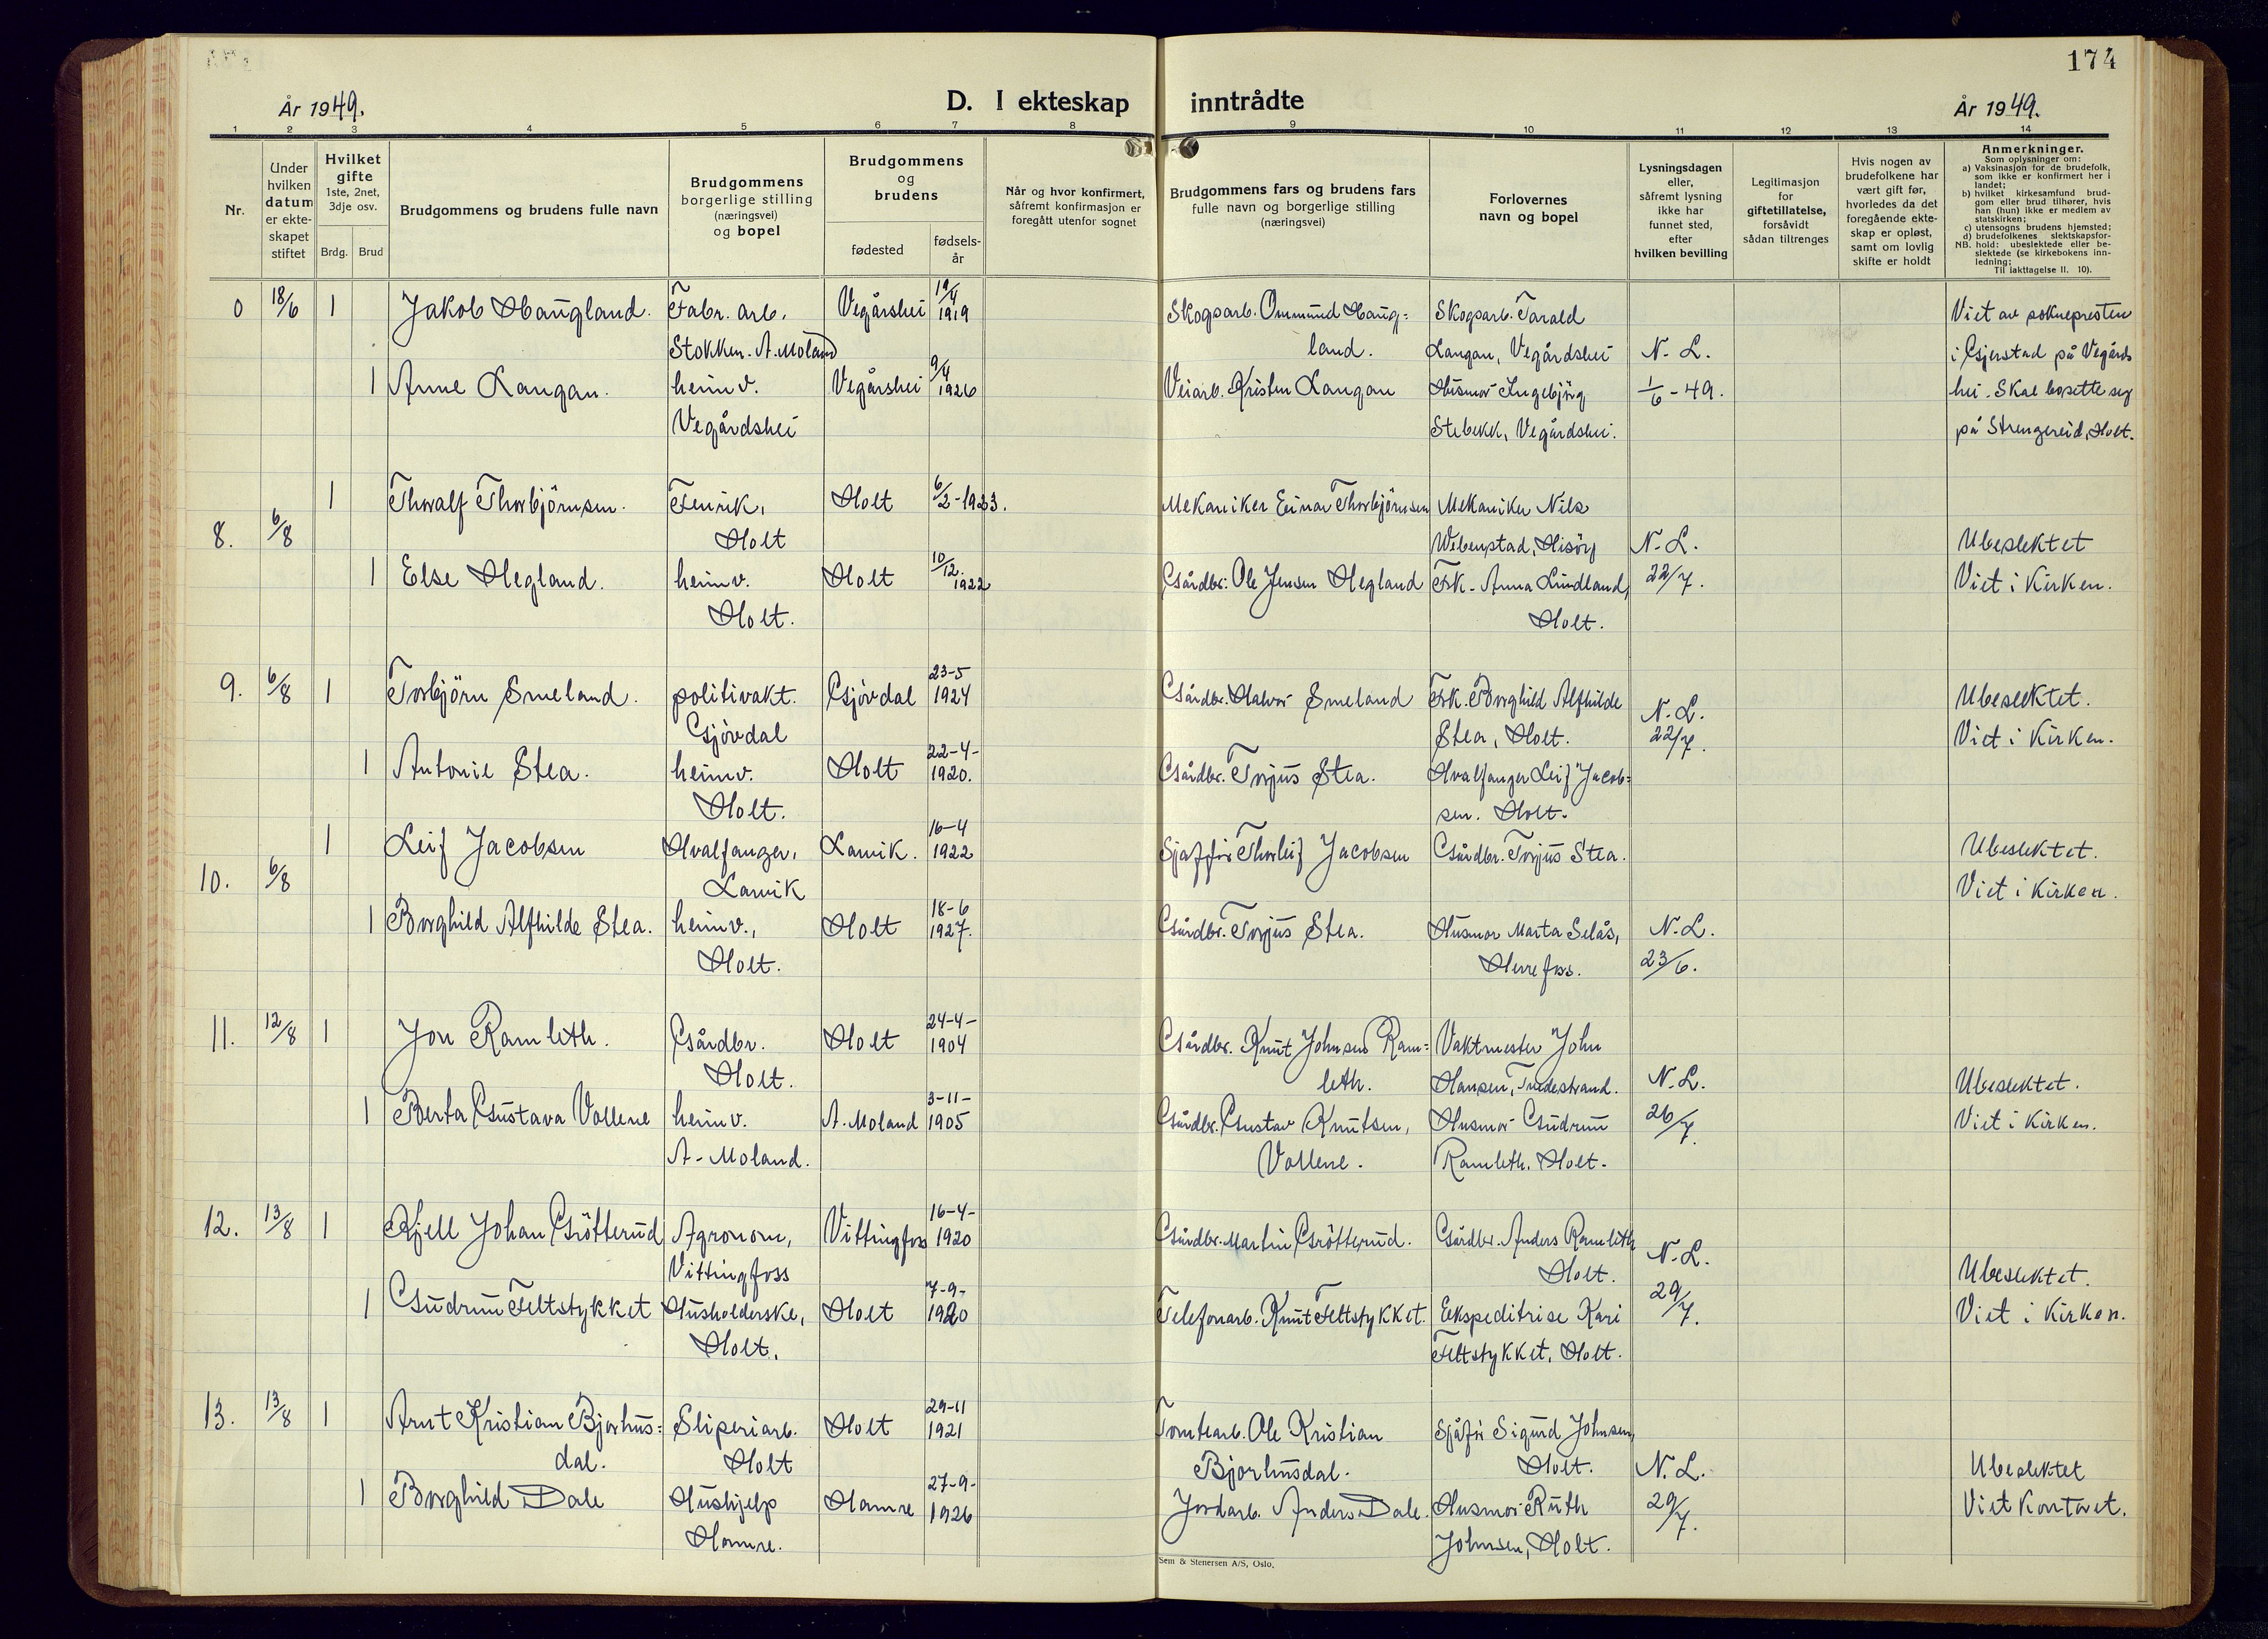 174
År 1949.
D. I ekteskap inntrådte
År 1949.
1 2 3 4 5 6 7 8 9 10 11 12 13 14
Nr.
Under hvilken datum er ekteskapet stiftet
Hvilket gifte 1ste, 2net, 3dje osv.
Brdg. Brud
Brudgommens og brudens fulle navn
Brudgommens borgerlige stilling (næringsvei) og bopel
Brudgommens og brudens
fødested
fødsels-år
Når og hvor konfirmert, såfremt konfirmasjon er foregått utenfor sognet
Brudgommens fars og brudens fars fulle navn og borgerlige stilling (næringsvei)
Forlovernes navn og bopel
Lysningsdagen eller, såfremt lysning ikke har funnet sted, efter hvilken bevilling
Legitimasjon for giftetillatelse, forsåvidt sådan tiltrenges
Hvis nogen av brudefolkene har vært gift før, hvorledes da det foregående ekteskap er opløst, samt om lovlig skifte er holdt
Anmerkninger.
Som oplysninger om:
a) Vaksinasjon for de brudefolk, som ikke er konfirmert her i landet;
b) hvilket kirkesamfund brudgom eller brud tilhører, hvis han (hun) ikke er medlem av statskirken;
c) utensogns brudens hjemsted;
d) brudefolkenes slektskapsforhold: ubeslektede eller beslektede (se kirkebokens innledning;
NB.
Til iakttagelse II. 10).
0 18/6 1 Jakob Haugland. Fabr. arb. Vegårshei 19/4 1919 Skogsarb. Ommund Haug= Skogsarb. Tarald Viet av soknepresten
Stokken. A. Moland land. Langan, Vegårdshei N. L. i Gjerstad på Vegårds
1 Anne Langan. heimv. Vegårshei 9/4 1926 Veiarb. Kristen Langan Husmor Ingebjörg 1/6 - 49. hei. Skal bosette seg
Vegårdshei Stebekk, Vegårdshei. på Strengereid, Holt.
8. 6/8 1 Thoralf Thorbjörnsen. Fenrik, Holt 6/2-1923. Mekaniker Einar Thorbjörnsen Mekaniker Nils
Holt Hisöy N. L. Ubeslektet
1 Else Hegland. heimv. Holt 10/12. 1922 Gårdbr. Ole Jensen Hegland Frk. Anna Lindland, 22/7. Viet i Kirken.
Holt. Holt.
9. 6/8 1 Torbjörn Smeland. politivakt. Gjövdal 23-5 1924 Gårdbr. Halvor Smeland Frk. Borghild Alfhilde N. L. Ubeslektet.
Gjövdal Stea, Holt. 22/7. Viet i Kirken.
1 Antonie Stea. heimv. Holt 22-4-1920. Gårdbr. Torjus Stea. Hvalfanger Leif Jacob=
Holt. sen. Holt.
10. 6/8 1 Leif Jacobsen Hvalfanger, Larvik. 16-4 1922 Sjafför Thorleif Jacobsen Gårdbr. Torjus Stea. Ubeslektet.
Larvik Viet i Kirken.
1 Borghild Alfhilde Stea. heimv., Holt 18-6 1927. Gårdbr. Torjus Stea. Husmor Marta Selås, N. L.
Holt. Herefoss. 23/6.
11. 12/8 1 Jon Ramleth. Gårdbr. Holt 24-4-1904 Gårdbr. Knut Johnsen Ram= Vaktmester John
Holt. leth. Hansen, Tvedestrand. N. L. Ubeslektet.
1 Berta Gustava Vallene heimv. A. Moland 3-11-1905 Gårdbr. Gustav Knutsen, Husmor Gudrun 26/7. Viet i Kirken.
A-Moland. Vallene. Ramleth, Holt.
12. 13/8 1 Kjell Johan Grötterud Agronom, Vittingfoss 16-4-1920 Gårdbr. Martin Grötterud. Gårdbr. Anders Ramleth N. L.
Vittingfoss Holt. Ubeslektet.
1 Gudrun Feltstykket Husholderske, Holt 7-9-1920 Telefonarb. Knut Feltstykket. Ekspeditrise Kari 29/7. Viet i Kirken.
Holt. Feltstykket, Holt.
13. 13/8 1 Arnt Kristian Bjorhus= Sliperiarb. Holt 29-11 1921 Tomtearb. Ole Kristian Sjåför Sigurd Johnsen,
dal. Holt Bjorhusdal. Holt. N. L. Ubeslektet
1 Borghild Dale Hushjelp Hamre 27-9-1926 Jordarb. Anders Dale. Husmor Ruth 29/7. Viet Kontoret.
Hamre. Johnsen, Holt.
Sem & Stenersen A/S, Oslo.